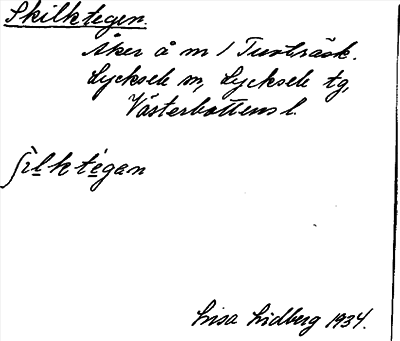 Skilktegen.
Åker å m / Tuvträsk.
Lycksele sn, Lycksele tg,
Västerbottens l.
ʃìlktègan
Lisa Lidberg 1934.